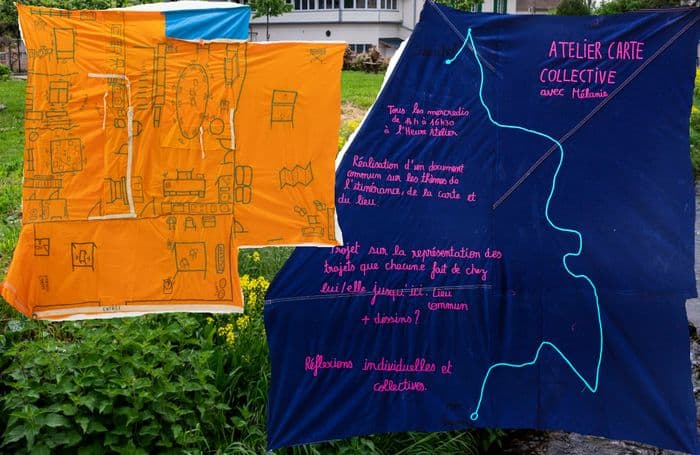 ATELIER CARTE
COLLECTIVE
avec Mélanie
Tous les mercredis
de 14h à 16h30
à l'Heure Atelier
Réalisation d'un document
commun sur les thèmes de
l'itinérance, de la carte et
du lieu.
Projet sur la représentation des
trajets que chacune fait de chez
lui/elle jusqu'ici. Lieu
commun
+ dessins?
Réflexions individuelles et
collectives.
ENTRÉE